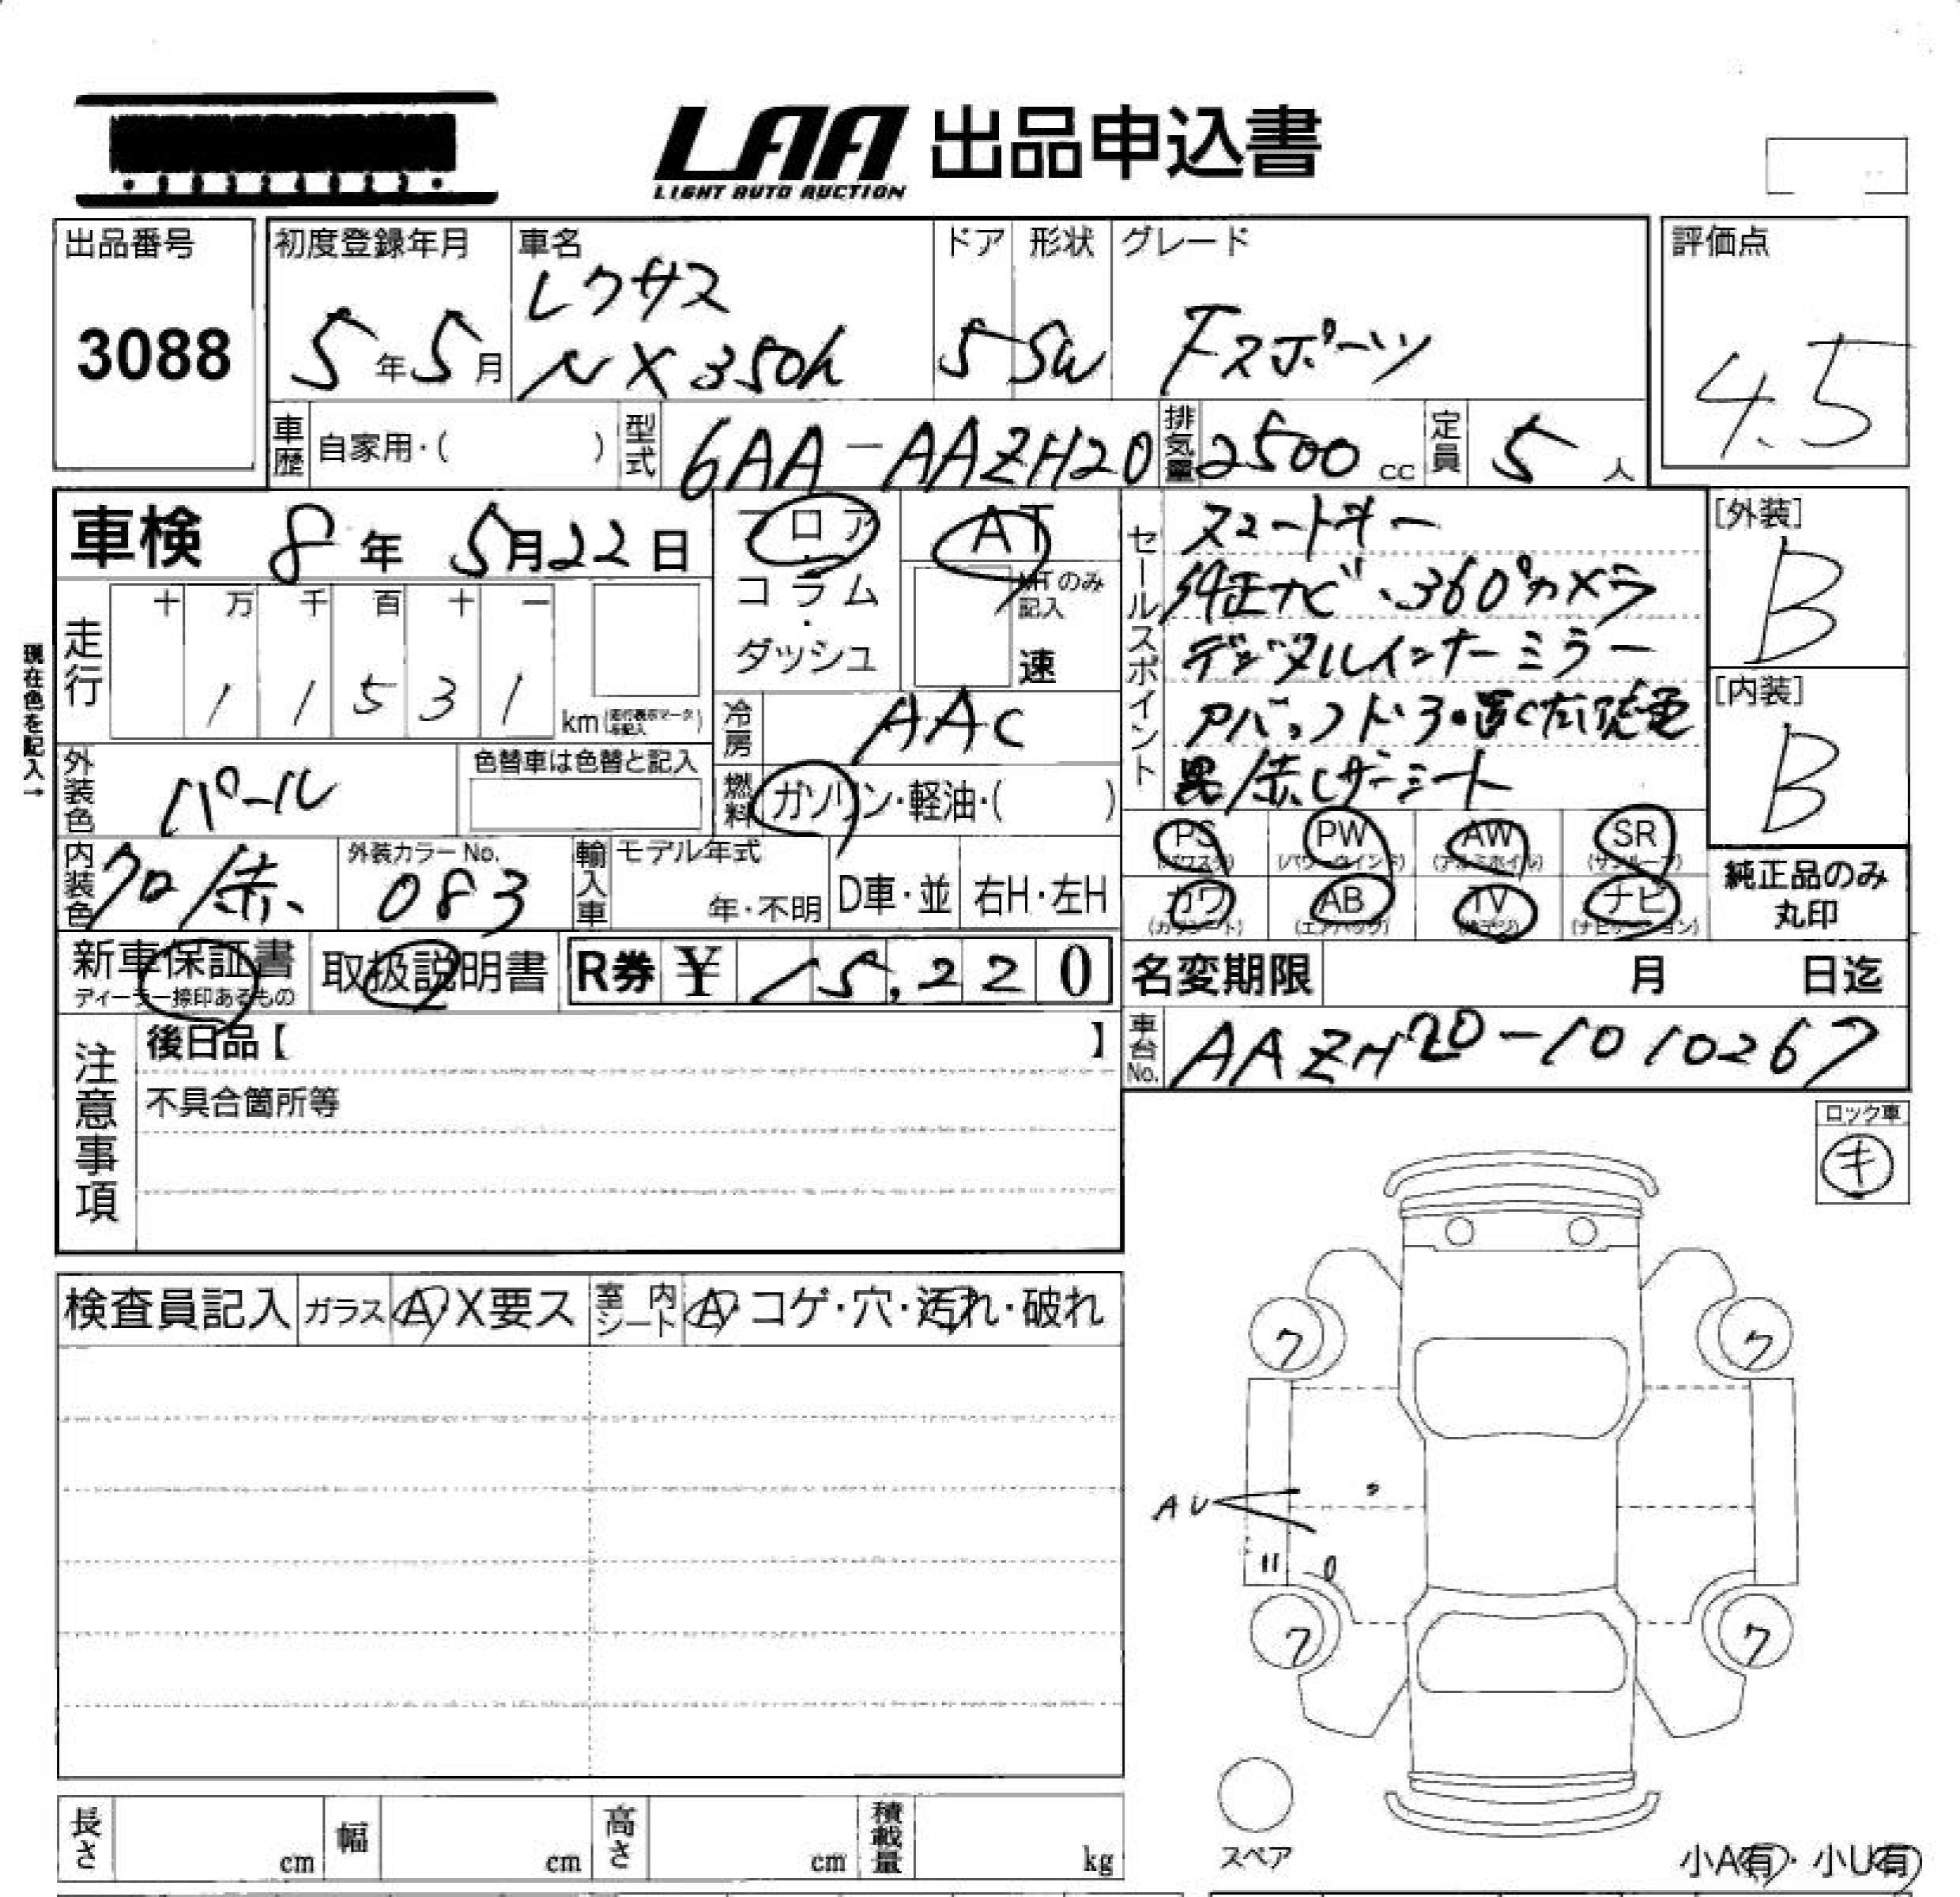 LAA 出品申込書
LIGHT AUTO AUCTION
出品番号
3088
初度登録年月
5年5月
車名
レクサス
NX350h
ドア
5
形状
SW
グレード
Fスポーツ
評価点
4.5
車歴 自家用・( )
型式 6AA-AAZH20
排気量 2500cc
定員 5人
車検 8年5月22日
フロア
コラム
・
ダッシュ
AT
MTのみ記入
速
セールスポイント
スマートキー
純正ナビ、360°カメラ
デジタルインナーミラー
黒/赤レザーシート
[外装]
B
[内装]
B
現在色を記入→
走行
十 万 千 百 十 一
1 1 5 3 1
km
冷房 AAC
外装色 パール
色替車は色替と記入
燃料 ガソリン・軽油・( )
内装色 クロ/赤
外装カラーNo.
083
輸入車 モデル年式
年・不明
D車・並
右H・左H
PS PW AW SR
(パワステ) (パワーウインド) (アルミホイル) (サンルーフ)
カワ AB TV ナビ
(カワシート) (エアバッグ) (ナビゲーション)
純正品のみ
丸印
新車保証書
ディーラー捺印あるもの
取扱説明書
R券 ¥ 15,220
名変期限 月 日迄
車台No. AAZH20-1010267
注意事項
後日品【 】
不具合箇所等
ロック車
キ
検査員記入
ガラス A X要ス
室内シート A・コゲ・穴・汚れ・破れ
ワ ワ
AU
ワ ワ
スペア
長さ cm
幅 cm
高さ cm
積載量 kg
小A有・小U有